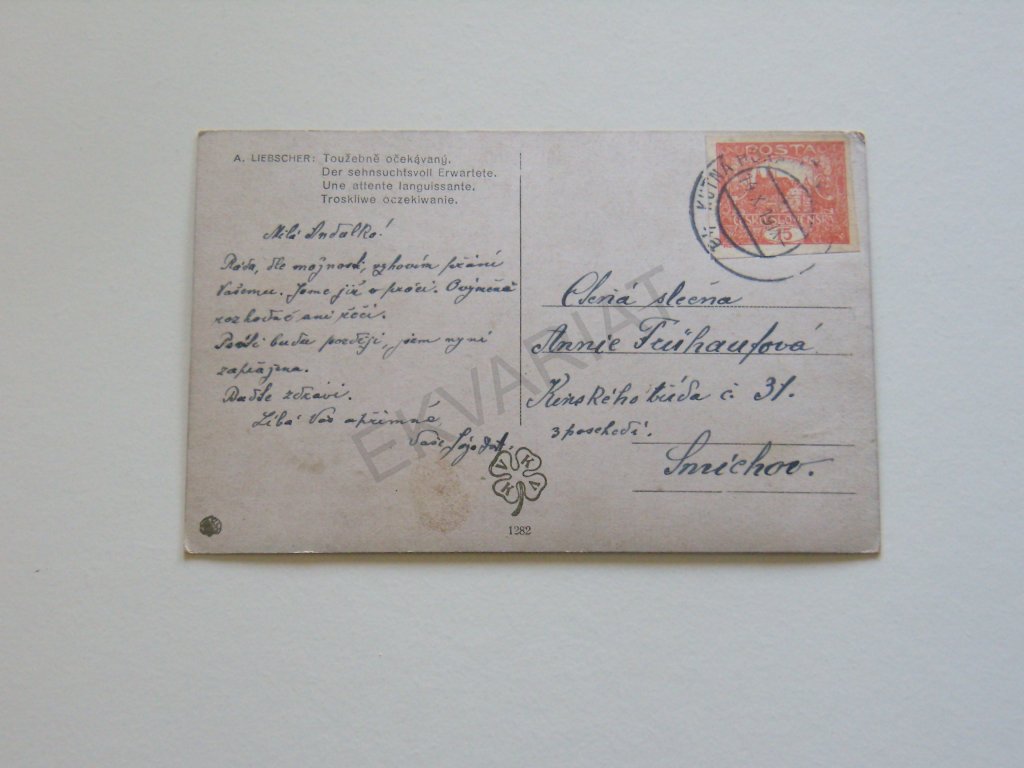 A. LIEBSCHER: Toužebně očekávaný.
Der sehnsuchtsvoll Erwartete.
Une attente languissante.
Troskliwe oczekiwanie.
Milá Andulko!
Ráda, dle možnosti, vyhovím přání
Vašemu. Jsme již v práci.
rozhodně ani řeči.
budu později, jsem nyní
zapřažena.
Buďte zdrávi.
Líbá Vás upřímně
Vaše
POŠTA
ČESKOSLOVENSKÁ
15
KUTNÁ
Ctěná slečna
Annie Frühaufová
Kinského třída č. 31.
3 poschodí.
Smíchov.
V K K V
1282
EKVARIAT